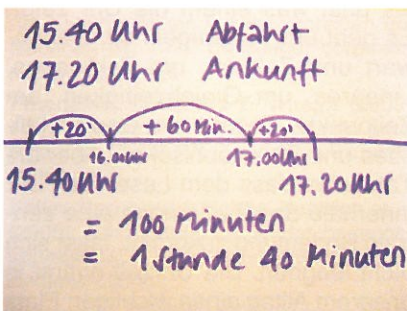 15.40 Uhr Abfahrt
17.20 Uhr Ankunft
+20' + 60 Min. +20'
16.00 Uhr 17.00 Uhr
15.40 Uhr 17.20 Uhr
= 100 Minuten
= 1 Stunde 40 Minuten